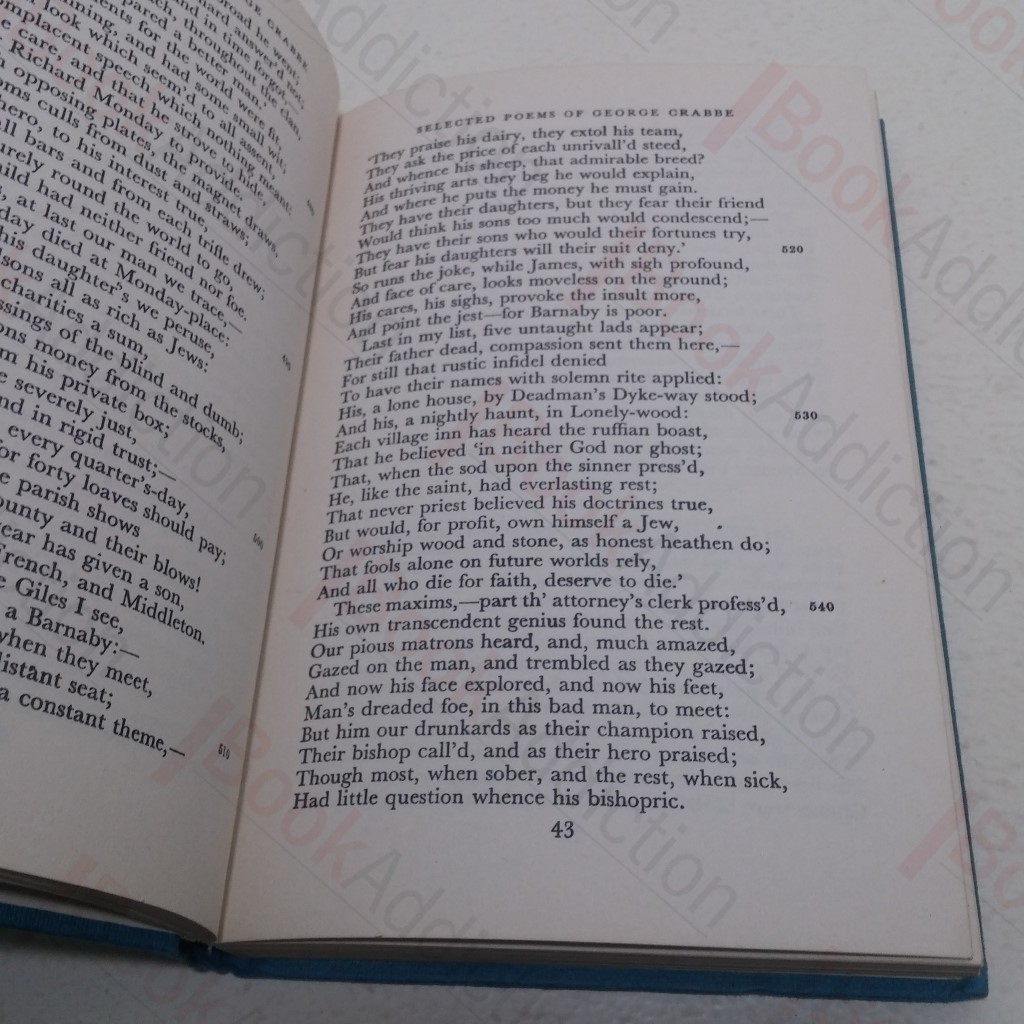 GE CRABBE
broad he went;
and in time forgot,—
throughout the clan,
pared a better man.'
ments for the world were fit,
nning, and had some small wit;
look which seem'd to all assent,
mplacent speech which nothing meant:
care, and that he strove to hide,
Richard Monday to provide.
opposing plates, the magnet draws,
culls from dust and straws;
hero, to his interest true,
all bars and from each trifle drew;
urely round the world to go,
hild had neither friend nor foe.
, at last our man we trace,—
day died at Monday-place:
his daughter's we peruse,
sons all as rich as Jews:
charities a sum,
ssings of the blind and dumb;
ons money from the stocks,
m his private box;
e severely just,
nd in rigid trust;—
every quarter's-day,
or forty loaves should pay;
500
e parish shows
ounty and their blows!
ear has given a son,
French, and Middleton.
e Giles I see,
a Barnaby:—
when they meet,
distant seat;
a constant theme,—
510
SELECTED POEMS OF GEORGE CRABBE
'They praise his dairy, they extol his team,
They ask the price of each unrivall'd steed,
And whence his sheep, that admirable breed?
His thriving arts they beg he would explain,
And where he puts the money he must gain.
They have their daughters, but they fear their friend
Would think his sons too much would condescend;—
They have their sons who would their fortunes try,
But fear his daughters will their suit deny.' 520
So runs the joke, while James, with sigh profound,
And face of care, looks moveless on the ground;
His cares, his sighs, provoke the insult more,
And point the jest—for Barnaby is poor.
Last in my list, five untaught lads appear;
Their father dead, compassion sent them here,—
For still that rustic infidel denied
To have their names with solemn rite applied:
His, a lone house, by Deadman's Dyke-way stood;
And his, a nightly haunt, in Lonely-wood: 530
Each village inn has heard the ruffian boast,
That he believed 'in neither God nor ghost;
That, when the sod upon the sinner press'd,
He, like the saint, had everlasting rest;
That never priest believed his doctrines true,
But would, for profit, own himself a Jew,
Or worship wood and stone, as honest heathen do;
That fools alone on future worlds rely,
And all who die for faith, deserve to die.'
These maxims,—part th' attorney's clerk profess'd, 540
His own transcendent genius found the rest.
Our pious matrons heard, and, much amazed,
Gazed on the man, and trembled as they gazed;
And now his face explored, and now his feet,
Man's dreaded foe, in this bad man, to meet:
But him our drunkards as their champion raised,
Their bishop call'd, and as their hero praised;
Though most, when sober, and the rest, when sick,
Had little question whence his bishopric.
43
BookAddiction